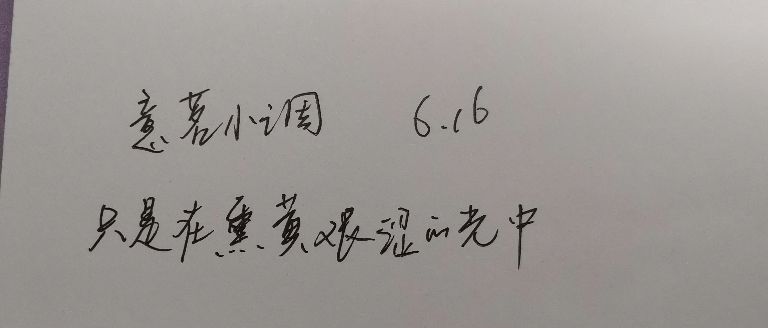 意茗小调 6.16
只是在熏黄艰涩的光中